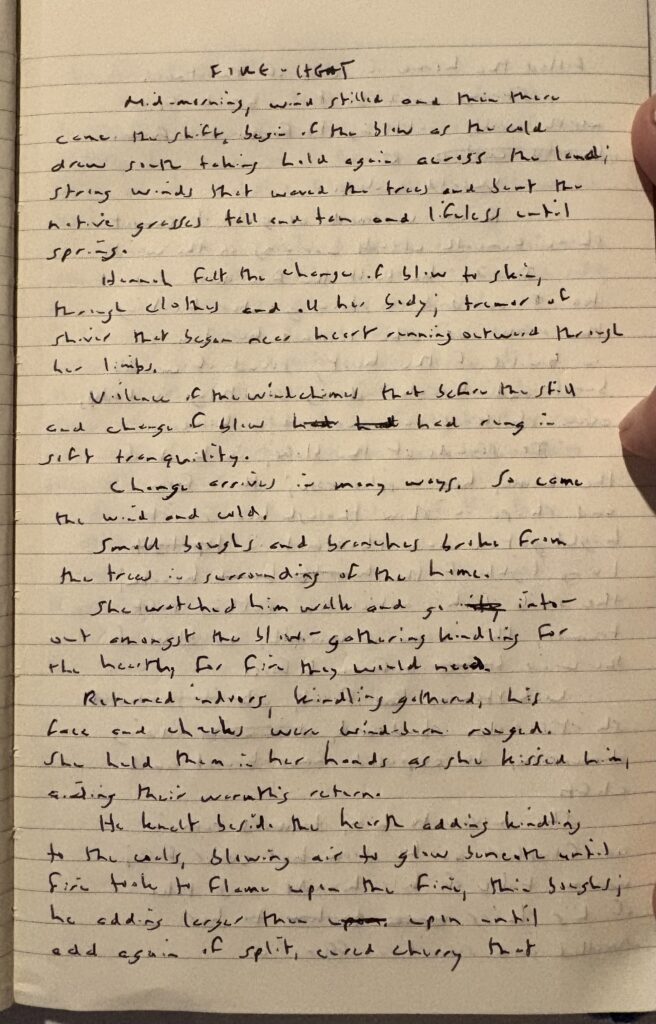 FIRE-LIGHT
Mid-morning, wind stilled and then there
came the shift, begin of the blow as the cold
drew south taking hold again across the land;
strong winds that waved the trees and bent the
native grasses tall and tan and lifeless until
spring.
Hannah felt the change of blow to skin,
through clothes and all her body; tremor of
shiver that began near heart running outward through
her limbs.
Violence of the windchimes that before the still
and change of blow had rung in
soft tranquility.
Change arrives in many ways. So came
the wind and cold.
Small boughs and branches broke from
the trees in surrounding of the home.
She watched him walk and go into-
out amongst the blow-gathering kindling for
the hearth, for fire they would need.
Returned indoors, kindling gathered, his
face and cheeks were wind-burn rouged.
She held them in her hands as she kissed him,
aiding their warmth's return.
He knelt beside the hearth adding kindling
to the coals, blowing air to glow beneath until
fire took to flame upon the fine, thin boughs;
he adding larger then upon until
add again of split, cured cherry that